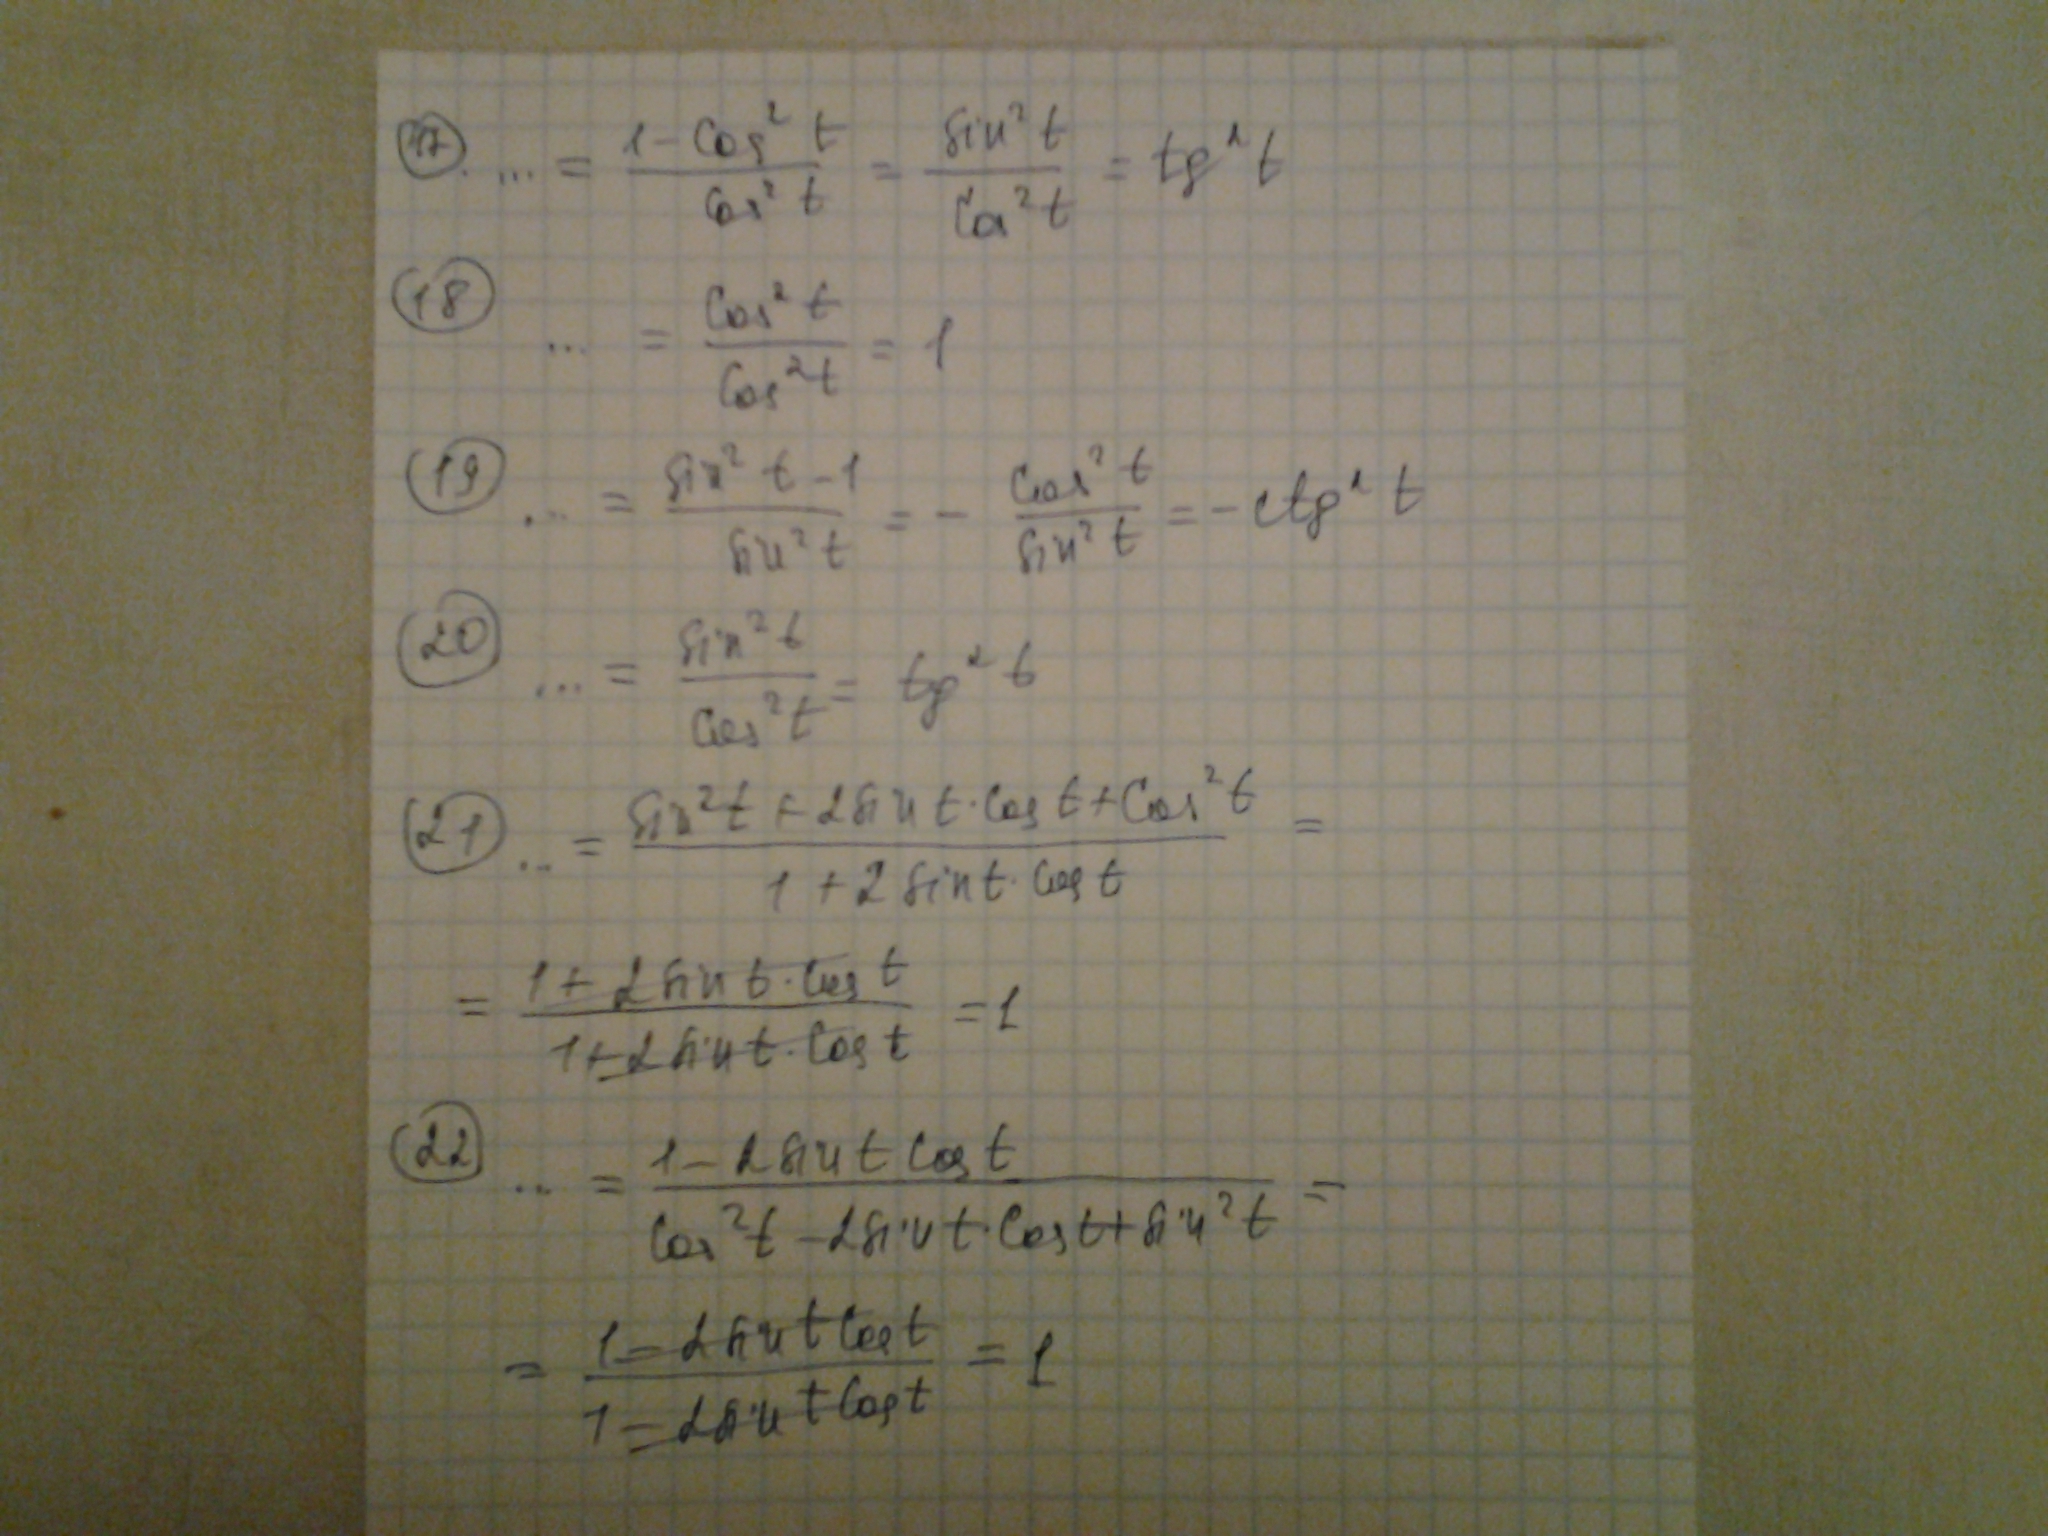 17. ... = (1 - Cos² t)/(Cos² t) = (sin² t)/(Cos² t) = tg² t
18 ... = (Cos² t)/(Cos² t) = 1
19 ... = (sin² t - 1)/(sin² t) = - (Cos² t)/(sin² t) = - ctg² t
20 ... = (sin² t)/(Cos² t) = tg² t
21 ... = (sin² t + 2 sin t · Cos t + Cos² t)/(1 + 2 sin t · Cos t) =
= (1 + 2 sin t · Cos t)/(1 + 2 sin t · Cos t) = 1
22 ... = (1 - 2 sin t Cos t)/(Cos² t - 2 sin t · Cos t + sin² t) =
= (1 - 2 sin t Cos t)/(1 - 2 sin t Cos t) = 1